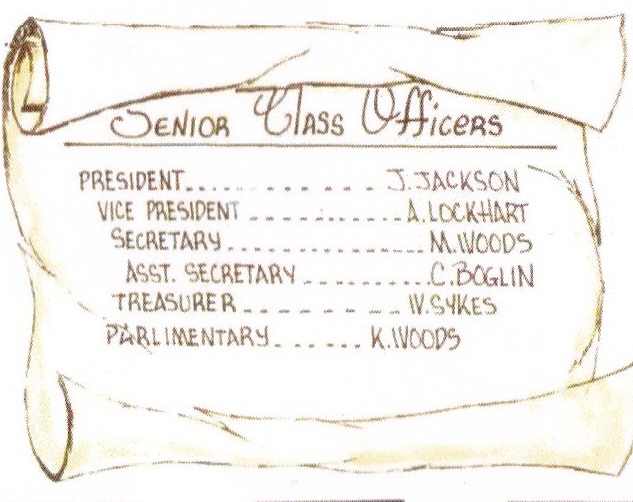 SENIOR CLASS OFFICERS
PRESIDENT............J.JACKSON
VICE PRESIDENT...........A.LOCKHART
SECRETARY................M.WOODS
ASST. SECRETARY..........C.BOGLIN
TREASURER.........W.SYKES
PARLIMENTARY......K.WOODS